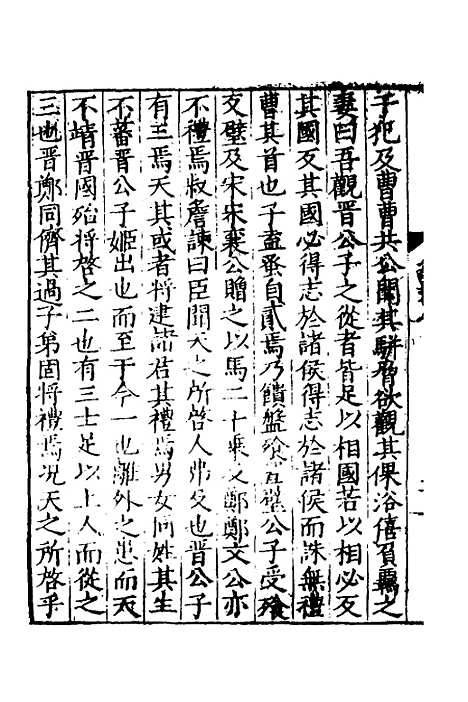 子犯及曹曹共公聞其駢脅欲觀其倮浴僖負羈之
妻曰吾觀晉公子之從者皆足以相國若以相必反
其國反其國必得志於諸侯得志於諸侯而誅無禮
曹其首也子盍蚤自貳焉乃饋盤飧寘璧公子受飧
反璧及宋宋襄公贈之以馬二十乘及鄭鄭文公亦
不禮焉叔詹諫曰臣聞天之所啓人弗及也晉公子
有三焉天其或者將建諸君其禮焉男女同姓其生
不蕃晉公子姬出也而至于今一也離外之患而天
不靖晉國殆將啓之二也有三士足以上人而從之
三也晉鄭同儕其過子弟固將禮焉況天之所啓乎